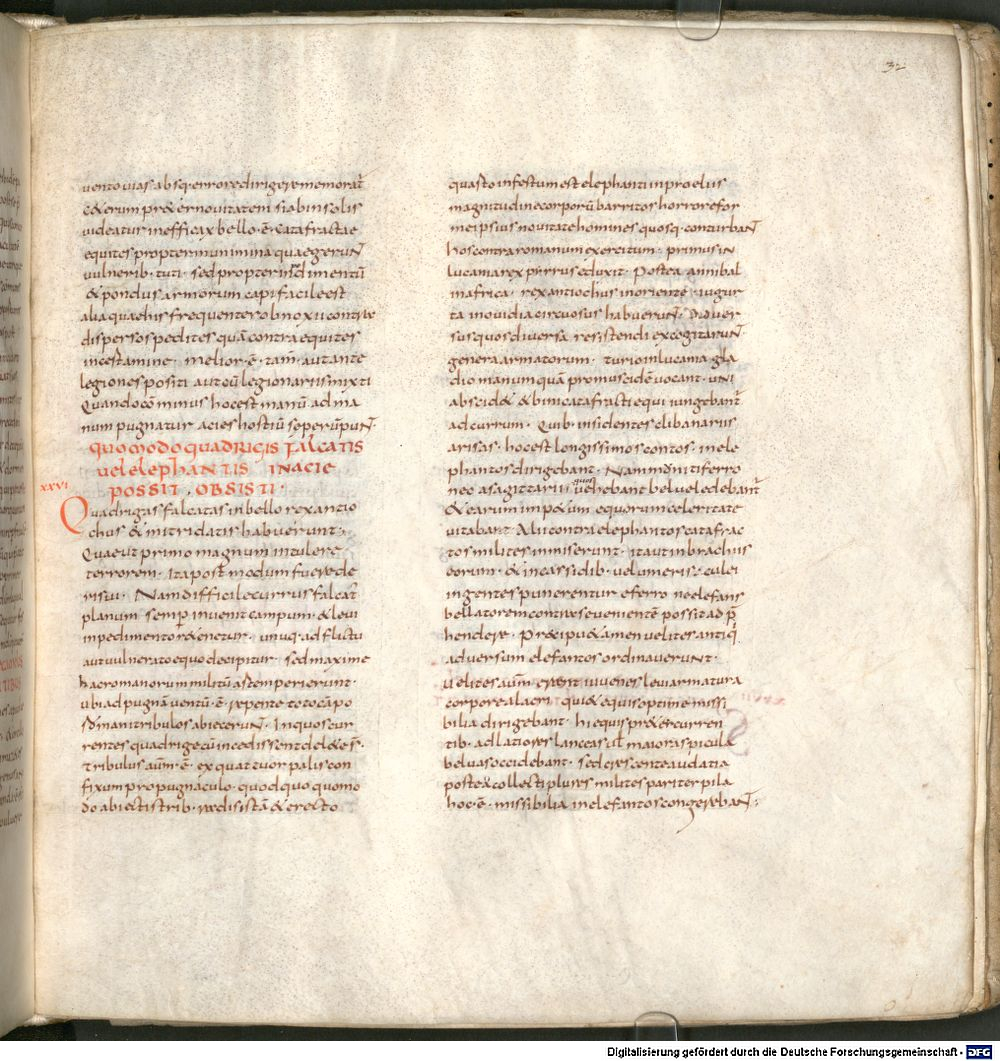 32
uento uias absq; errore dirigere memorat̄
cęterum prętęr nouitatem sui ab insolis
uideatur inefficax bello · ē · catafractae
equites propter munimina quae gerunt
uulnerib · tuti · sed propter inpedimentū
& pondus armorum capi facile est
aliaquaehis frequenter obnoxii contra
dispersos pedites quā contra equites
in certamine · melior · ē · tam̄ · aut ante
legiones positi aut cū legionariis mixti
Quando cōminus hoc est manū ad ma
num pugnatur acies hostiū sepe rūpunt
quomodo quadrigis falcatis
uel elephantis in acie
possit · obsisti ·
XXVI
Quadrigas falcatas in bello rex antio
chus & mitridatis habuerunt ·
Quae ut primo magnum intulere
terrorem · ita post modum fuere de
risui · Nam difficile currus falcat̄
planum semp̄ inuenit campum · & leui
inpedimento r&en&ur · unuq; adflictu
aut uulnerato equo decipitur · sed maxime
hac romanorum militū arte perierunt ·
ubi ad pugnā uentū · ē · repente toto cāpo
romani tribulos abiecerunt · In quos cur
rentes quadrige cū incedissent del&e s̄ ·
tribulus aūm · ē · ex quattuor palis con
fixum propugnaculo · quod quo quomo
do abiectis trib · redisistā & erecto
quasto infestum est elephanti in proeliis
magnitudine corporū barritos horrore for
me ipsius nouitate homines quosq; conturbant
hos contra romanum exercitum · primus in
lucania rex pyrrus eduxit · Postea annibal
in africa · rex antiochus in oriente · iugur
ta in ouidia circuosus habuerunt · Aduer
sus quos diuersa resistendi excogitarunt
genera armatorum · turio in lucania gla
dio manum quā promuscidē uocant · uni
abscidt & bini catafracti equi iungebant̄
ad currum · Quib · insidentes clibanarii
arisas · hoc est longissimos contos · in ele
phantos dirigebant · Nam muniti ferro
nec a sagittarii quos uehebant beluae ledebant̄
& earum imp&um equorum celeritate
uitabant Alii contra elephantos catafrac
tos milites inmiserunt · ita ut in brachiis
eorum · & in cassidib · uel umeris · culei
ingentes punerentur e ferro ne elefans
bellatorem contra se uenientē possit ad p̄
hendere · Pręcipue tamen uelites antiq̄
aduersum elefantos ordinauerunt ·
Uelites aūm erant iuuenes leui armatura
corpore alacri · qui & equis optime missi
bilia dirigebant · hi equis pręt&curren
tib · ad latiores lanceas uł maiora spicula
beluas occidebant · sed crescente audatia
postea collecti plures milites pariter pila
hoc · ē · missibilia in elefantos congerebant ·
Digitalisierung gefördert durch die Deutsche Forschungsgemeinschaft - DFG